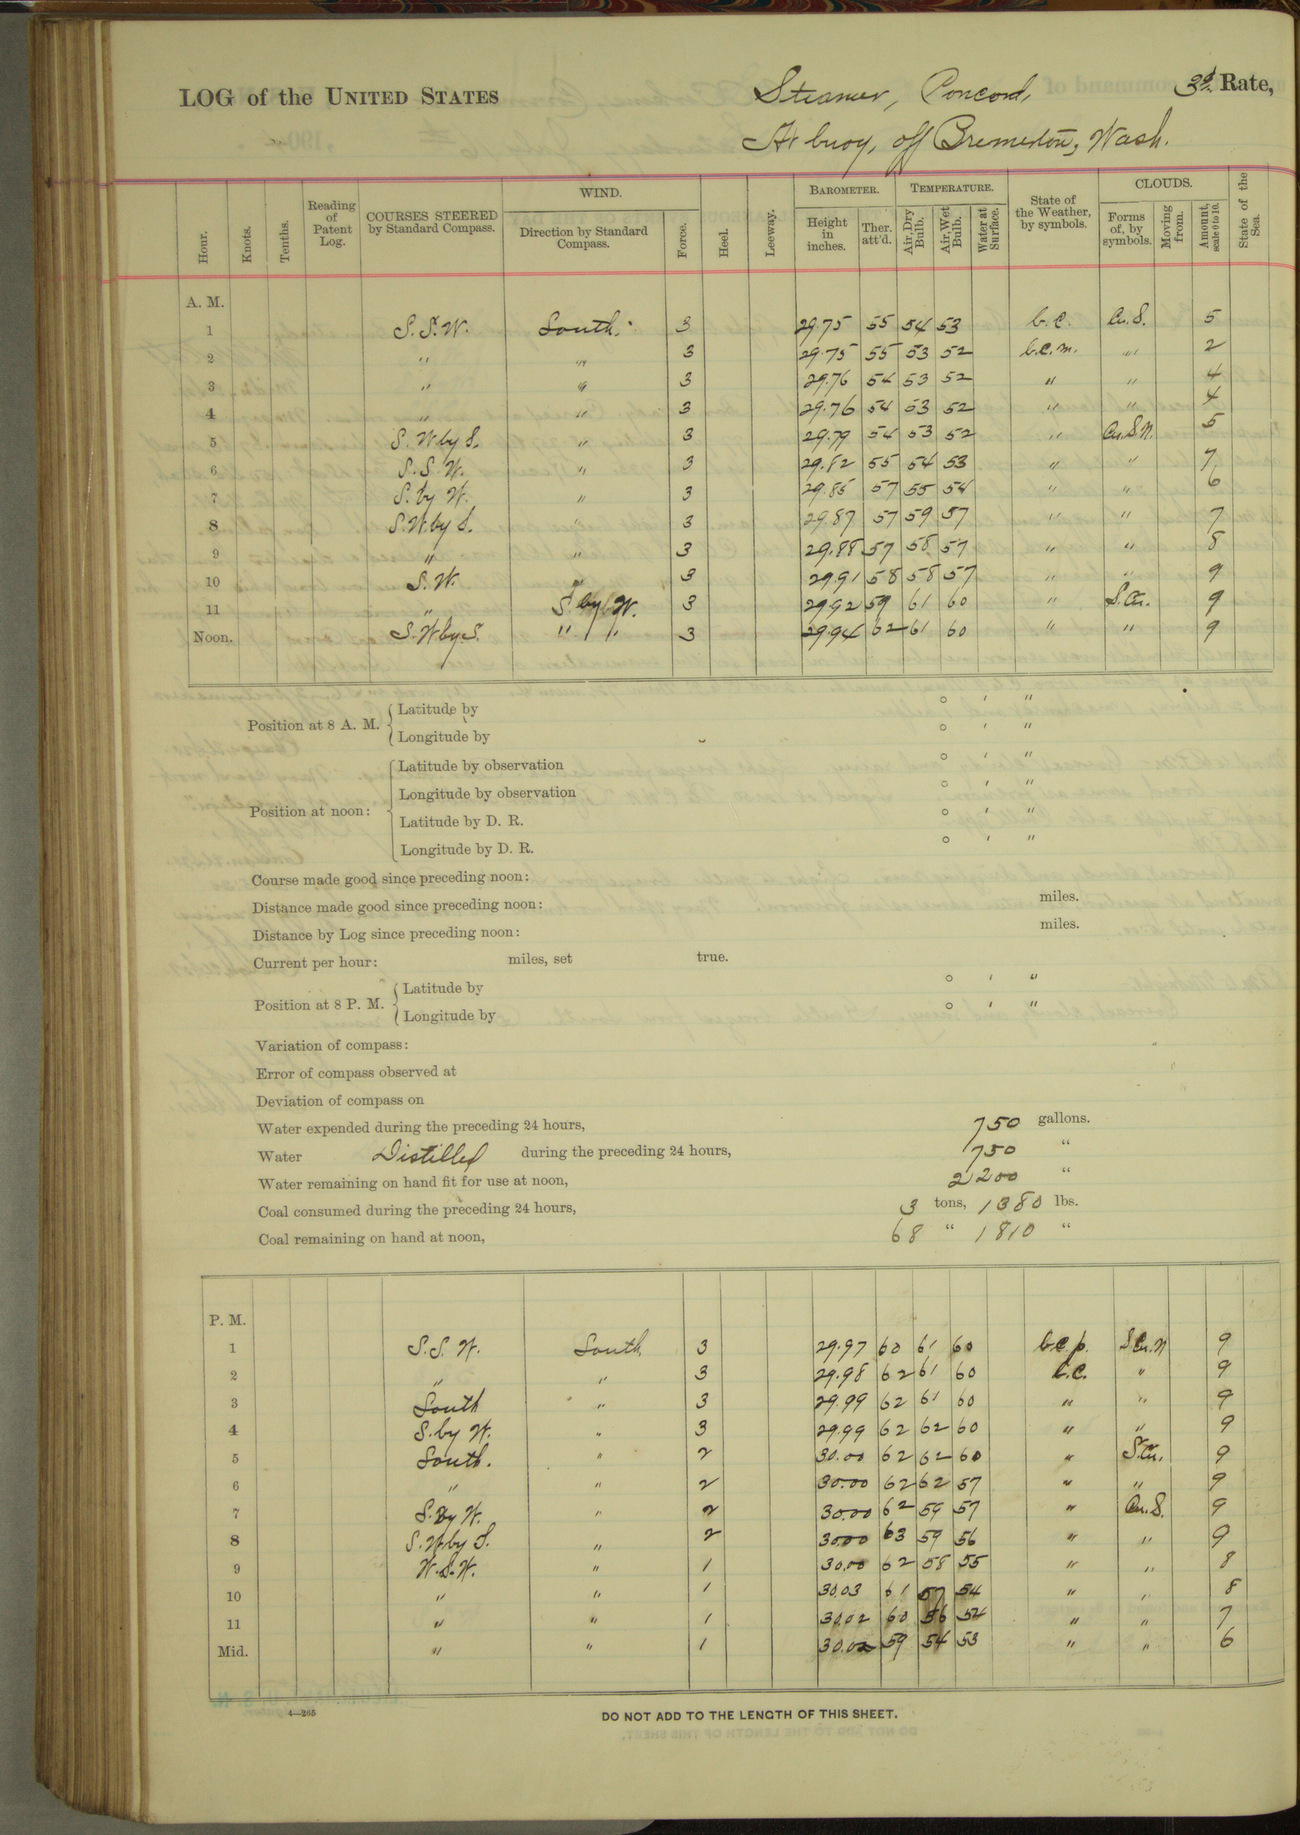 LOG of the UNITED STATES Steamer, Concord, 3d. Rate,
At buoy, off Bremerton, Wash.
Hour. Knots. Tenths. Reading of Patent Log. COURSES STEERED by Standard Compass. WIND. Direction by Standard Compass. Force. Heel. Leeway. BAROMETER. Height in inches. Ther. att'd. TEMPERATURE. Air, Dry Bulb. Air, Wet Bulb. Water at Surface. State of the Weather, by symbols. CLOUDS. Forms of, by symbols. Moving from. Amount, scale 0 to 10. State of the Sea.
A. M.
1 S.S.W. South. 3 29.75 55 54 53 b.c. Cu.S. 5
2 " " 3 29.75 55 53 52 b.c.m. " 2
3 " " 3 29.76 54 53 52 " " 4
4 " " 3 29.76 54 53 52 " " 4
5 S.W by S. " 3 29.79 54 53 52 " Cu.S.N. 5
6 S.S.W. " 3 29.82 55 54 53 " " 7
7 S. by W. " 3 29.85 57 55 54 " " 6
8 S.W. by S. " 3 29.87 57 59 57 " " 7
9 " " 3 29.88 57 58 57 " " 8
10 S.W. " 3 29.91 58 58 57 " " 9
11 " S. by W. 3 29.92 59 61 60 " S.Cu. 9
Noon. S.W by S. " " 3 29.94 62 61 60 " " 9
Position at 8 A. M. Latitude by ° ' "
Longitude by ° ' "
Position at noon: Latitude by observation ° ' "
Longitude by observation ° ' "
Latitude by D. R. ° ' "
Longitude by D. R. ° ' "
Course made good since preceding noon:
Distance made good since preceding noon: miles.
Distance by Log since preceding noon: miles.
Current per hour: miles, set true.
Position at 8 P. M. Latitude by ° ' "
Longitude by ° ' "
Variation of compass:
Error of compass observed at
Deviation of compass on
Water expended during the preceding 24 hours, 750 gallons.
Water Distilled during the preceding 24 hours, 750 "
Water remaining on hand fit for use at noon, 2200 "
Coal consumed during the preceding 24 hours, 3 tons, 1380 lbs.
Coal remaining on hand at noon, 68 " 1810 "
P. M.
1 S.S.W. South 3 29.97 60 61 60 b.c.p. S.Cu.N 9
2 " " 3 29.98 62 61 60 b.c. " 9
3 South " 3 29.99 62 61 60 " " 9
4 S. by W. " 3 29.99 62 62 60 " " 9
5 South. " 2 30.00 62 62 60 " S.Cu. 9
6 " " 2 30.00 62 62 57 " " 9
7 S. By W. " 2 30.00 62 59 57 " Cu.S. 9
8 S.W. by S. " 2 30.00 63 59 56 " " 9
9 W.S.W. " 1 30.00 62 58 55 " " 8
10 " " 1 30.03 61 57 54 " " 8
11 " " 1 30.02 60 56 54 " " 7
Mid. " " 1 30.02 59 54 53 " " 6
4—265 DO NOT ADD TO THE LENGTH OF THIS SHEET.